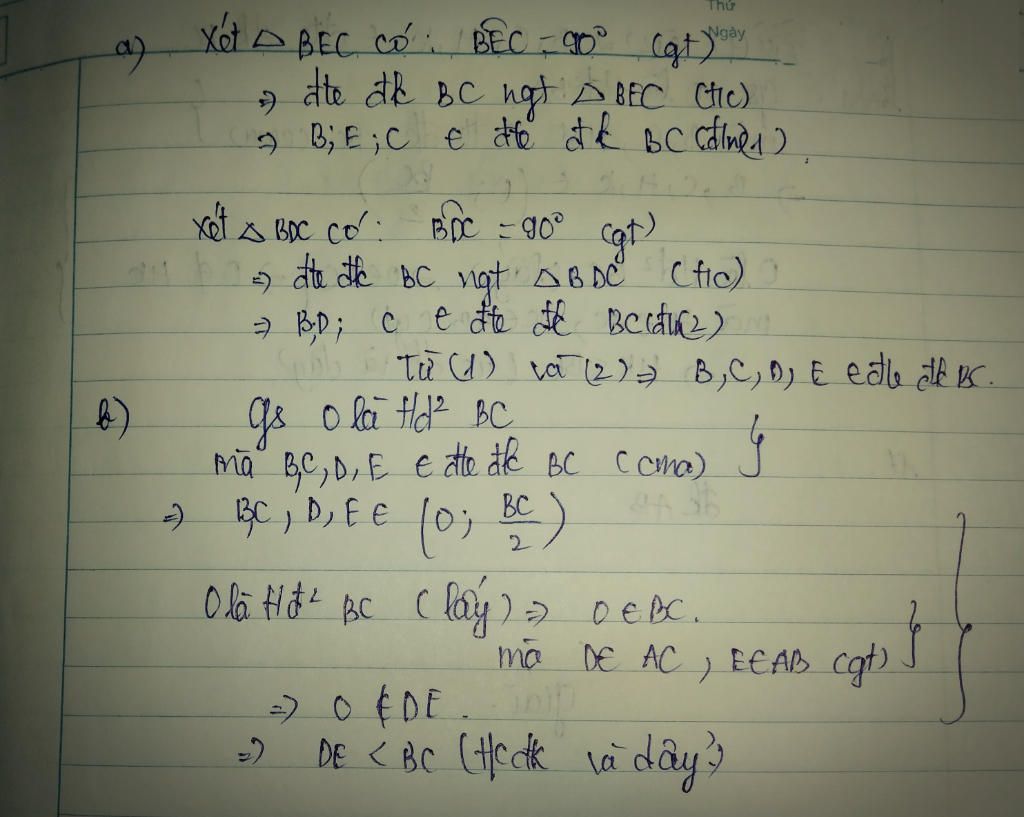 Thứ
Ngày
a) Xét △ BEC có: BEC = 90° (gt)
=> đtr đk BC ngt △ BEC (t/c)
=> B; E; C ∈ đtr đk BC (đ/n) (1)
Xét △ BDC có: BDC = 90° (gt)
=> đtr đk BC ngt △ BDC (t/c)
=> B, D; C ∈ đtr đk BC (đ/n) (2)
Từ (1) và (2) => B, C, D, E ∈ đtr đk BC.
b) Gs O là t/đ² BC
mà B, C, D, E ∈ đtr đk BC (cma)
=> B, C, D, E ∈ (O; BC/2)
O là t/đ² BC (lấy) => O ∈ BC.
mà D ∈ AC, E ∈ AB (gt)
=> O ∉ DE.
=> DE < BC (t/c đk và dây)